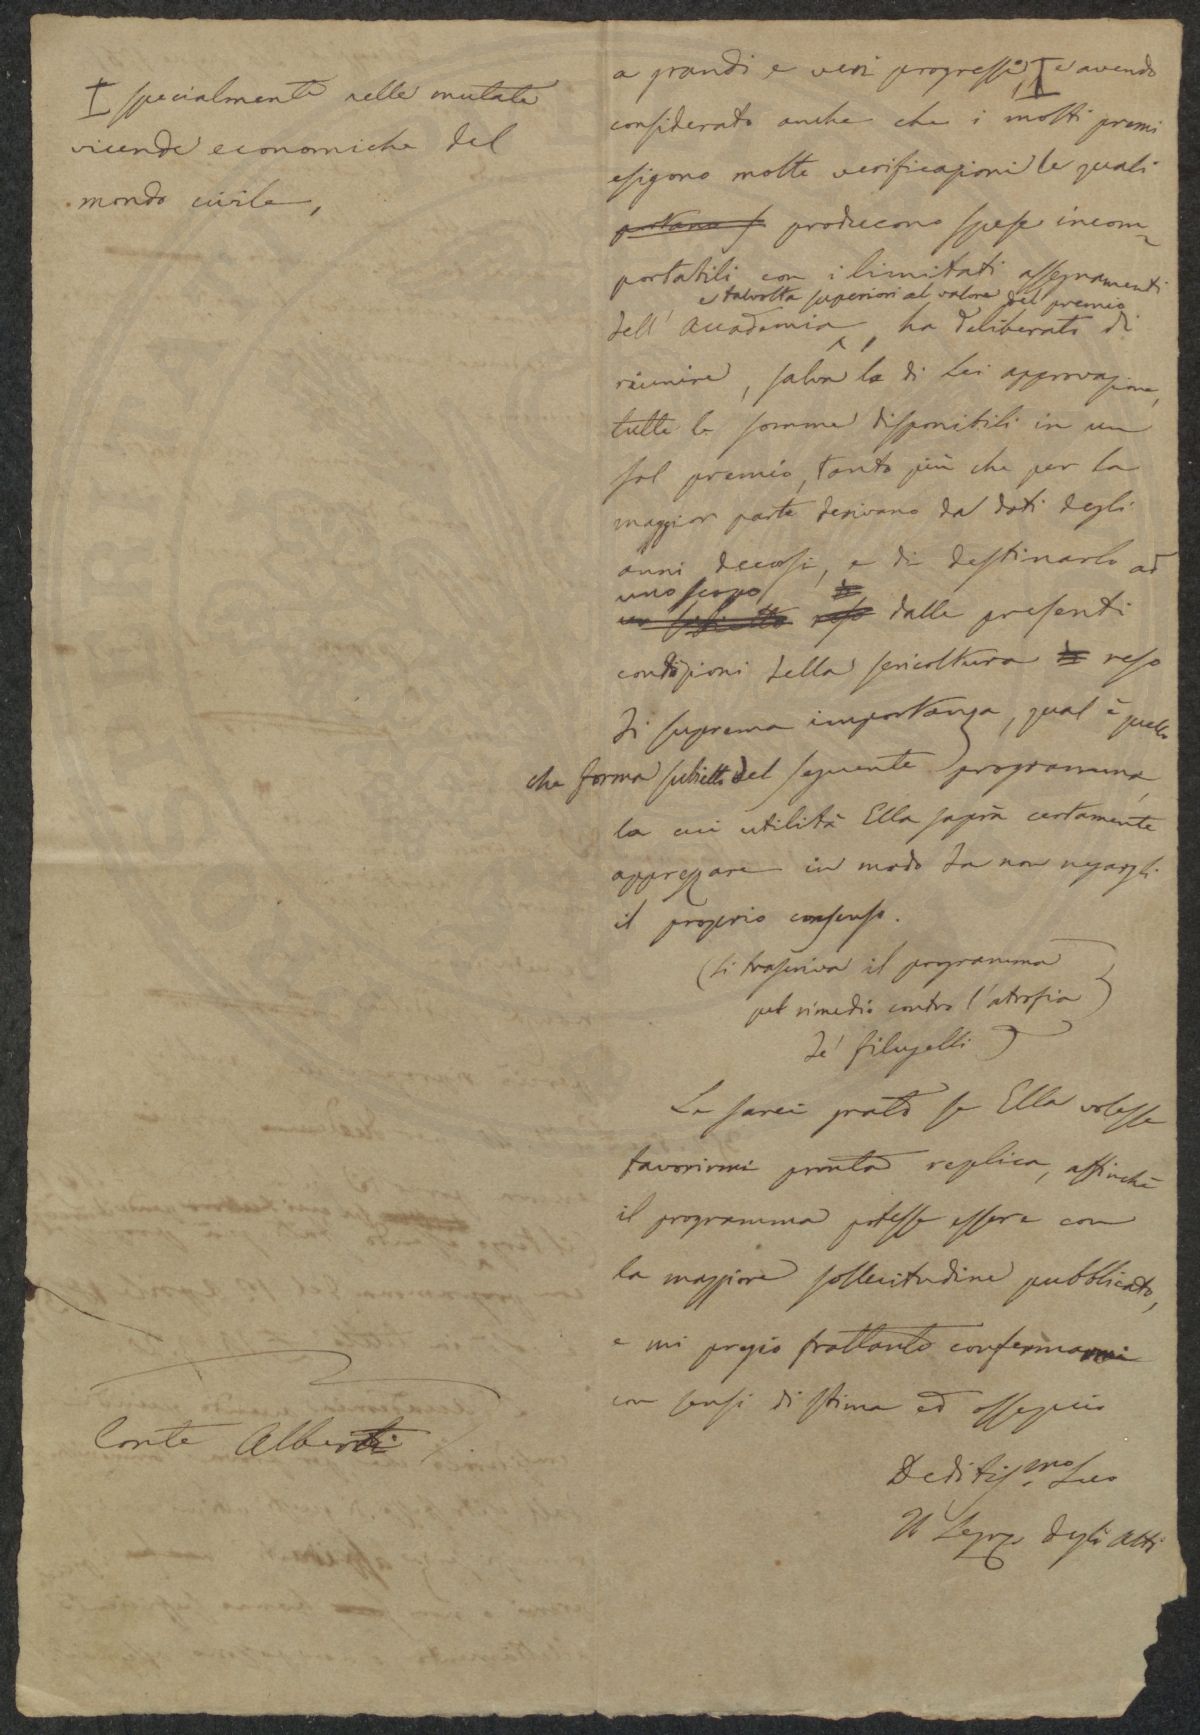 I specialmente nelle mutate
vicende economiche del
mondo civile,
a grandi e veri progressi, I e avendo
considerato anche che i molti premi
esigono molte verificazioni le quali
portano s producono spese incom-
portabili con i limitati assegnamenti
e talvolta superiori al valore del premio
dell' Accademia, ha deliberato di
riunire, salva la di Lei approvazione,
tutte le somme disponibili in un
sol premio, tanto più che per la
maggior parte derivano da doti degli
anni decorsi, e di destinarlo ad
uno scopo
un subietto reso dalle presenti
condizioni della sericoltura reso
di suprema importanza, qual è quello
che forma subietto del seguente programma,
la cui utilità Ella saprà certamente
apprezzare in modo da non negargli
il proprio consenso.
(Si trascriva il programma
pel rimedio contro l'atrofia
de' filugelli)
Le sarei grato se Ella volesse
favorirmi pronta replica, affinché
il programma potesse essere con
la maggiore sollecitudine pubblicato,
e mi pregio frattanto confermarmi
con sensi di stima ed ossequio
Deditiss.mo Suo
Il Segr. degli Atti
Conte Alberti